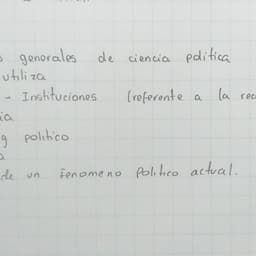 generales de ciencia política
utiliza
- Instituciones (referente a la
político
de un fenomeno Político actual.